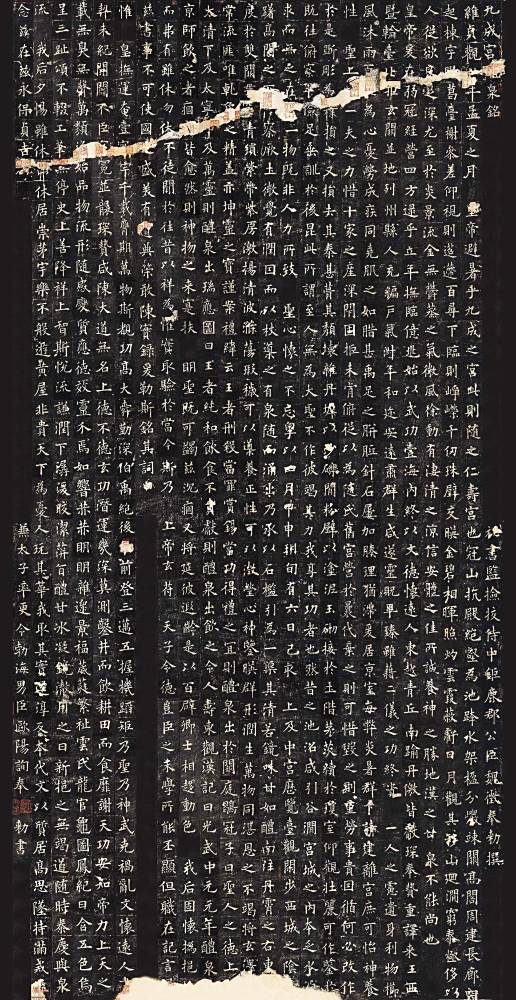 九成宮醴泉銘 秘書監檢校侍中鉅鹿郡公臣魏徵奉勅撰
維貞觀六年孟夏之月 皇帝避暑乎九成之宮此則隨之仁壽宮也冠山抗殿絕壑為池跨水架楹分巖竦闕高閣周建長廊四
起棟宇膠葛臺榭參差仰視則迢遰百尋下臨則崢嶸千仞珠壁交暎金碧相暉照灼雲霞蔽虧日月觀其移山迴澗窮泰極侈以
人從欲良足深尤至於炎景流金無鬱蒸之氣微風徐動有淒清之涼信安體之佳所誠養神之勝地漢之甘泉不能尚也
皇帝爰在弱冠經營四方逮乎立年撫臨億兆始以武功壹海內終以文德懷遠人東越青丘南踰丹徼皆獻琛奉贄重譯來王西
暨輪臺北拒玄闕並地列州縣人充編戶氣淑年和邇安遠肅群生咸遂靈貺畢臻雖藉二儀之功終資一人之慮遺身利物櫛
風沐雨百姓為心憂勞成疾同堯肌之如腊甚禹足之胼胝針石屢加腠理猶滯爰居京室每弊炎暑群下請建離宮庶可怡神養
性 聖上愛一夫之力惜十家之產深閉固拒未肯俯從以為隨氏舊宮營於曩代棄之則可惜毀之則重勞事貴因循何必改作
於是斲彫為樸損之又損去其泰甚葺其頹壞雜丹墀以沙礫間粉壁以塗泥玉砌接於土階茅茨續於瓊室仰觀壯麗可作鑒於
既往俯察卑儉足垂訓於後昆此所謂至人無為大聖不作彼竭其力我享其功者也然昔之池沼咸引谷澗宮城之內本乏水源
求而無之在乎一物既非人力所致 聖心懷之不忘粵以四月甲申朔旬有六日己亥 上及中宮歷覽臺觀閑步西城之陰
躊躇高閣之下俯察厥土微覺有潤因而以杖導之有泉隨而涌出乃承以石檻引為一渠其清若鏡味甘如醴南注丹霄之右東流
度於雙闕貫穿青瑣縈帶紫房激揚清波滌蕩瑕穢可以導養正性可以澂瑩心神鑒暎群形潤生萬物同湛恩之不竭將玄澤於
常流匪唯乾象之精蓋亦坤靈之寶謹案禮緯云王者刑殺當罪賞錫當功得禮之宜則醴泉出於闕庭鶡冠子曰聖人之德上及
太清下及太寧中及萬靈則醴泉出瑞應圖曰王者純和飲食不貢獻則醴泉出飲之令人壽東觀漢記曰光武中元元年醴泉出
京師飲之者痼疾皆愈然則神物之來寔扶 明聖既可蠲茲沉痼又將延彼遐齡是以百辟卿士相趨動色 我后固懷撝挹推
而弗有雖休勿休不徒聞於往昔以祥為懼實取驗於當今斯乃 上帝玄符 天子令德豈臣之末學所能丕顯但職在記言屬
茲書事不可使國之盛美有遺典策敢陳實錄爰勒斯銘其詞曰
惟 皇撫運奄壹寰宇千載膺期萬物斯覩功高大舜勤深伯禹絕後光前登三邁五握機蹈矩乃聖乃神武克禍亂文懷遠人書
契未紀開闢不臣冠冕並襲琛贄咸陳大道無名上德不德玄功潛運幾深莫測鑿井而飲耕田而食靡謝天功安知帝力上天之
載無臭無聲萬類資始品物流形隨感變質應德效靈介焉如響赫赫明明雜遝景福葳蕤繁祉雲氏龍官龜圖鳳紀日含五色烏
呈三趾頌不輟工筆無停史上善降祥上智斯悅流謙潤下潺湲皎潔蓱旨醴甘冰凝鏡澈用之日新挹之無竭道隨時泰慶與泉
流 我后夕惕雖休弗休居崇茅宇樂不般遊黃屋非貴天下為憂人玩其華我取其實還淳反本代文以質居高思墜持滿戒溢
念茲在茲永保貞吉 兼太子率更令勃海男臣歐陽詢奉 勅書